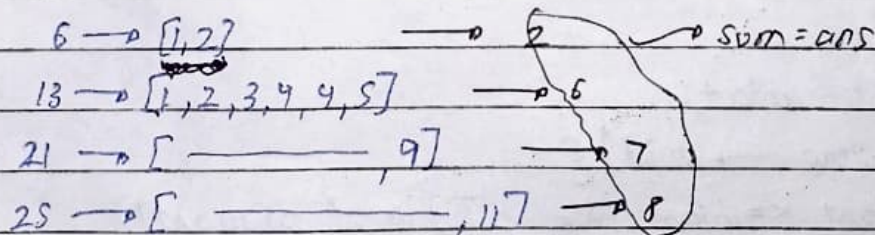 6 → [1,2] → 2 → sum = ans
13 → [1,2,3,4,4,5] → 6
21 → [ ——— , 9] → 7
25 → [ ——— , 11] → 8